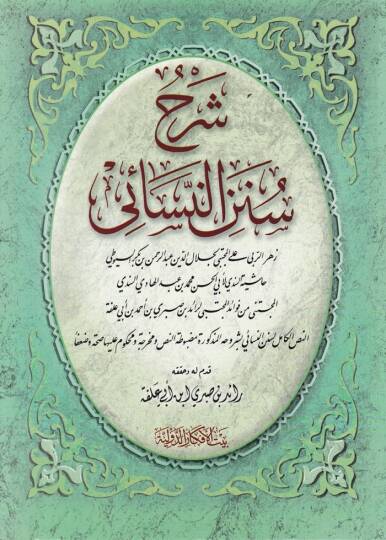 شرح
سنن النسائي
زهر الربى على المجتبى لجلال الدين عبد الرحمن بن أبي بكر السيوطي
حاشية السندي لأبي الحسن محمد بن عبد الهادي السندي
المجتنى من فوائد المجتبى لرائد بن صبري بن أحمد بن أبي علفة
النص الكامل لسنن النسائي بشروحه المذكورة مضبوطة النص ومخرجة ومحكوم عليها صحة وضعفا
قدم له وحققه
رائد بن صبري ابن أبي علفة
بيت الأفكار الدولية